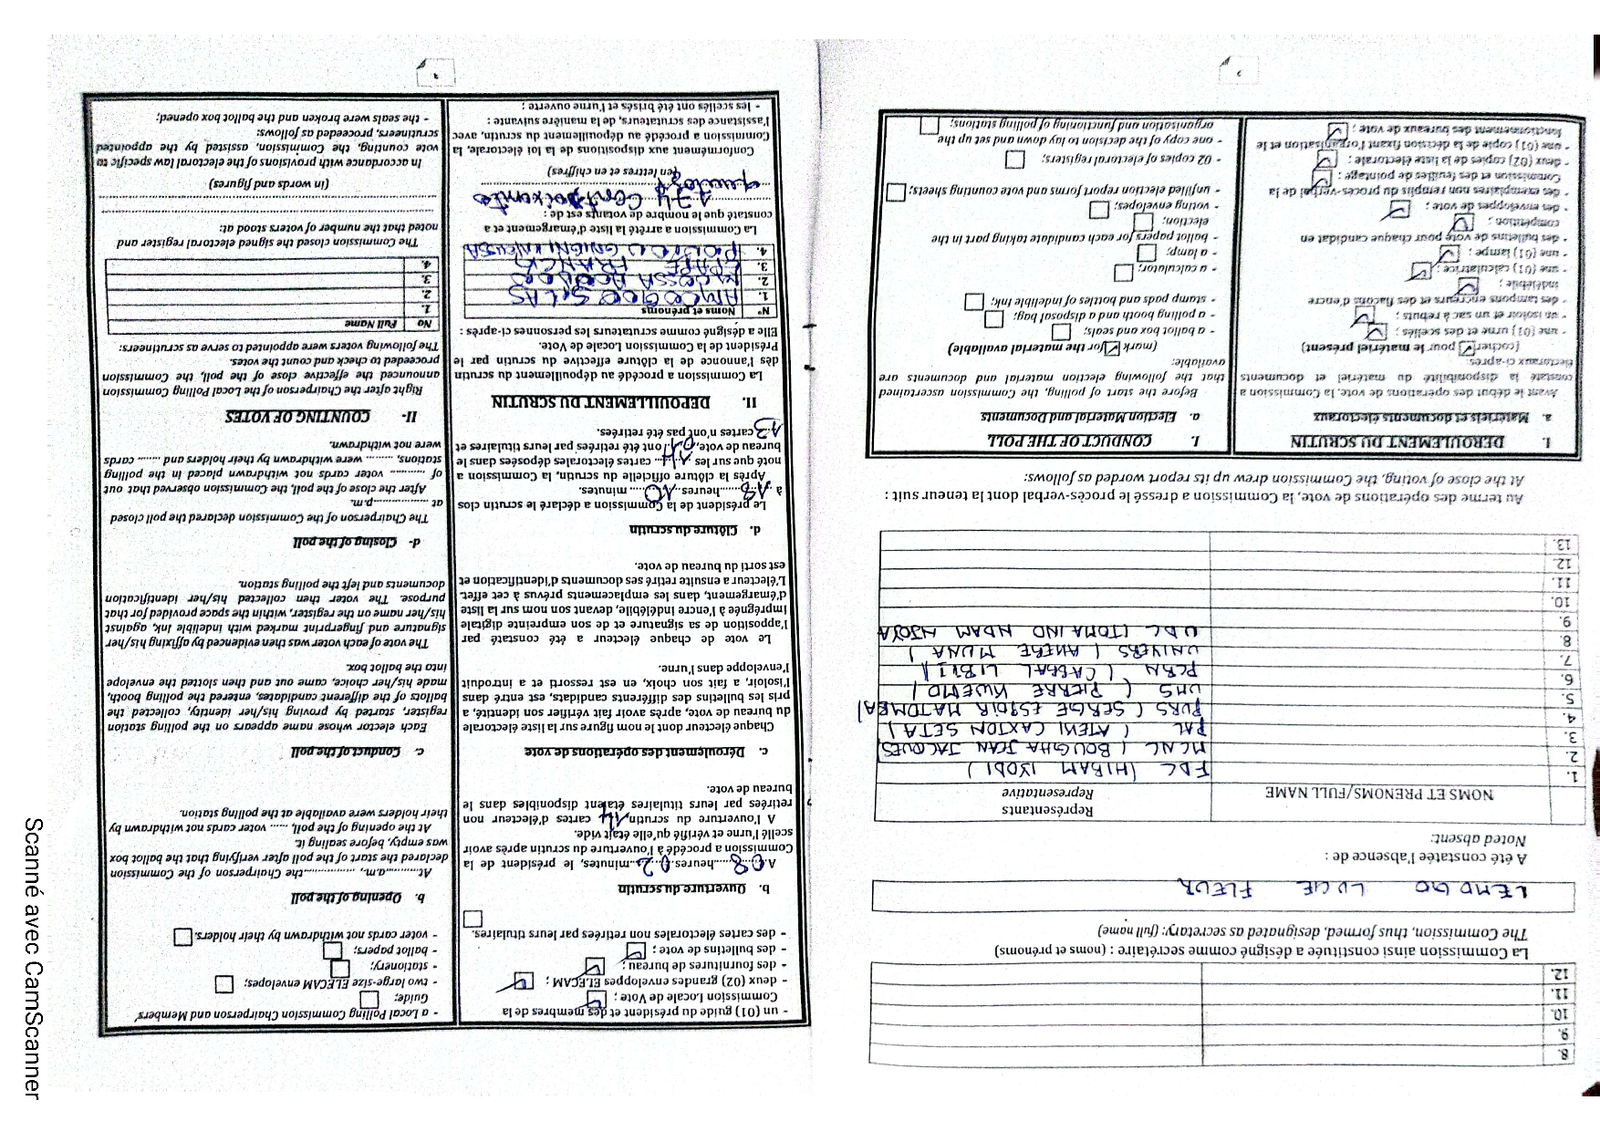 8.
9.
10.
11.
12.
La Commission ainsi constituée a désigné comme secrétaire : (noms et prénoms)
The Commission, thus formed, designated as secretary: (full name)
LEMOGO LUCIE FLEUR
A été constatée l'absence de :
Noted absent:
NOMS ET PRENOMS/FULL NAME
Représentants
Representative
1. FDC (HIRAM IYODI)
2. MCNC (BOUGHA JEAN JACQUES)
3. PAL (ATEKI CAXTON SETA)
4. PURS (SERGE ESPOIR MATOMBA)
5. UMS (PIERRE KWEMO)
6. PCRN (CABRAL LIBII)
7. UNIVERS (AKERE MUNA)
8. UDC (TOMAINO NDAM NJOYA
9.
10.
11.
12.
13.
Au terme des opérations de vote, la Commission a dressé le procès-verbal dont la teneur suit :
At the close of voting, the Commission drew up its report worded as follows:
I. DEROULEMENT DU SCRUTIN
a. Matériels et documents électoraux
Avant le début des opérations de vote, la Commission a
constaté la disponibilité du matériel et documents
électoraux ci-après:
(cocher ✓ pour le matériel présent)
- une (01) urne et des scellés ; ✓
- un isoloir et un sac à rebuts ; ✓
- des tampons encreurs et des flacons d'encre
indélébile ; ✓
- une (01) calculatrice ; ✓
- une (01) lampe ; ✓
- des bulletins de vote pour chaque candidat en
compétition ; ✓
- des enveloppes de vote ; ✓
- des exemplaires non remplis du procès-verbal de la
Commission et des feuilles de pointage ; ✓
- deux (02) copies de la liste électorale ; ✓
- une (01) copie de la décision fixant l'organisation et le
fonctionnement des bureaux de vote ; ✓
I. CONDUCT OF THE POLL
a. Election Material and Documents
Before the start of polling, the Commission ascertained
that the following election material and documents are
available:
(mark ✓ for the material available)
- a ballot box and seals;
- a polling booth and a disposal bag;
- stamp pads and bottles of indelible ink;
- a calculator;
- a lamp;
- ballot papers for each candidate taking part in the
election;
- voting envelopes;
- unfilled election report forms and vote counting sheets;
- 02 copies of electoral registers;
- one copy of the decision to lay down and set up the
organisation and functioning of polling stations;
2
- un (01) guide du président et des membres de la
Commission Locale de Vote ; ✓
- deux (02) grandes enveloppes ELECAM ; ✓
- des fournitures de bureau ; ✓
- des bulletins de vote ; ✓
- des cartes électorales non retirées par leurs titulaires.
b. Ouverture du scrutin
A 08 heures 02 minutes, le président de la
Commission a procédé à l'ouverture du scrutin après avoir
scellé l'urne et vérifié qu'elle était vide.
A l'ouverture du scrutin, 14 cartes d'électeur non
retirées par leurs titulaires étaient disponibles dans le
bureau de vote.
c. Déroulement des opérations de vote
Chaque électeur dont le nom figure sur la liste électorale
du bureau de vote, après avoir fait vérifier son identité, a
pris les bulletins des différents candidats, est entré dans
l'isoloir, a fait son choix, en est ressorti et a introduit
l'enveloppe dans l'urne.
Le vote de chaque électeur a été constaté par
l'apposition de sa signature et de son empreinte digitale
imprégnée à l'encre indélébile, devant son nom sur la liste
d'émargement, dans les emplacements prévus à cet effet.
L'électeur a ensuite retiré ses documents d'identification et
est sorti du bureau de vote.
d. Clôture du scrutin
Le président de la Commission a déclaré le scrutin clos
à 18 heures 10 minutes.
Après la clôture officielle du scrutin, la Commission a
noté que sur les 14 cartes électorales déposées dans le
bureau de vote, 01 ont été retirées par leurs titulaires et
13 cartes n'ont pas été retirées.
II. DEPOUILLEMENT DU SCRUTIN
La Commission a procédé au dépouillement du scrutin
dès l'annonce de la clôture effective du scrutin par le
Président de la Commission Locale de Vote.
Elle a désigné comme scrutateurs les personnes ci-après :
N° Noms et prénoms
1.
2.
3. FRANCK
4.
La Commission a arrêté la liste d'émargement et a
constaté que le nombre de votants est de :
174 Cent soixante
quatorze
(en lettres et en chiffres)
Conformément aux dispositions de la loi électorale, la
Commission a procédé au dépouillement du scrutin, avec
l'assistance des scrutateurs, de la manière suivante :
- les scellés ont été brisés et l'urne ouverte ;
- a Local Polling Commission Chairperson and Members'
Guide;
- two large-size ELECAM envelopes;
- stationery;
- ballot papers;
- voter cards not withdrawn by their holders.
b. Opening of the poll
At..........a.m., ..............the Chairperson of the Commission
declared the start of the poll after verifying that the ballot box
was empty, before sealing it.
At the opening of the poll, ...... voter cards not withdrawn by
their holders were available at the polling station.
c. Conduct of the poll
Each elector whose name appears on the polling station
register, started by proving his/her identity, collected the
ballots of the different candidates, entered the polling booth,
made his/her choice, came out and then slotted the envelope
into the ballot box.
The vote of each voter was then evidenced by affixing his/her
signature and fingerprint marked with indelible ink, against
his/her name on the register, within the space provided for that
purpose. The voter then collected his/her identification
documents and left the polling station.
d- Closing of the poll
The Chairperson of the Commission declared the poll closed
at ..................p.m.
After the close of the poll, the Commission observed that out
of .......... voter cards not withdrawn placed in the polling
stations, ........ were withdrawn by their holders and ...... cards
were not withdrawn.
II- COUNTING OF VOTES
Right after the Chairperson of the Local Polling Commission
announced the effective close of the poll, the Commission
proceeded to check and count the votes.
The following voters were appointed to serve as scrutineers:
No Full Name
1.
2.
3.
4.
The Commission closed the signed electoral register and
noted that the number of voters stood at:
(in words and figures)
In accordance with provisions of the electoral law specific to
vote counting, the Commission, assisted by the appointed
scrutineers, proceeded as follows:
- the seals were broken and the ballot box opened;
3
Scanné avec CamScanner